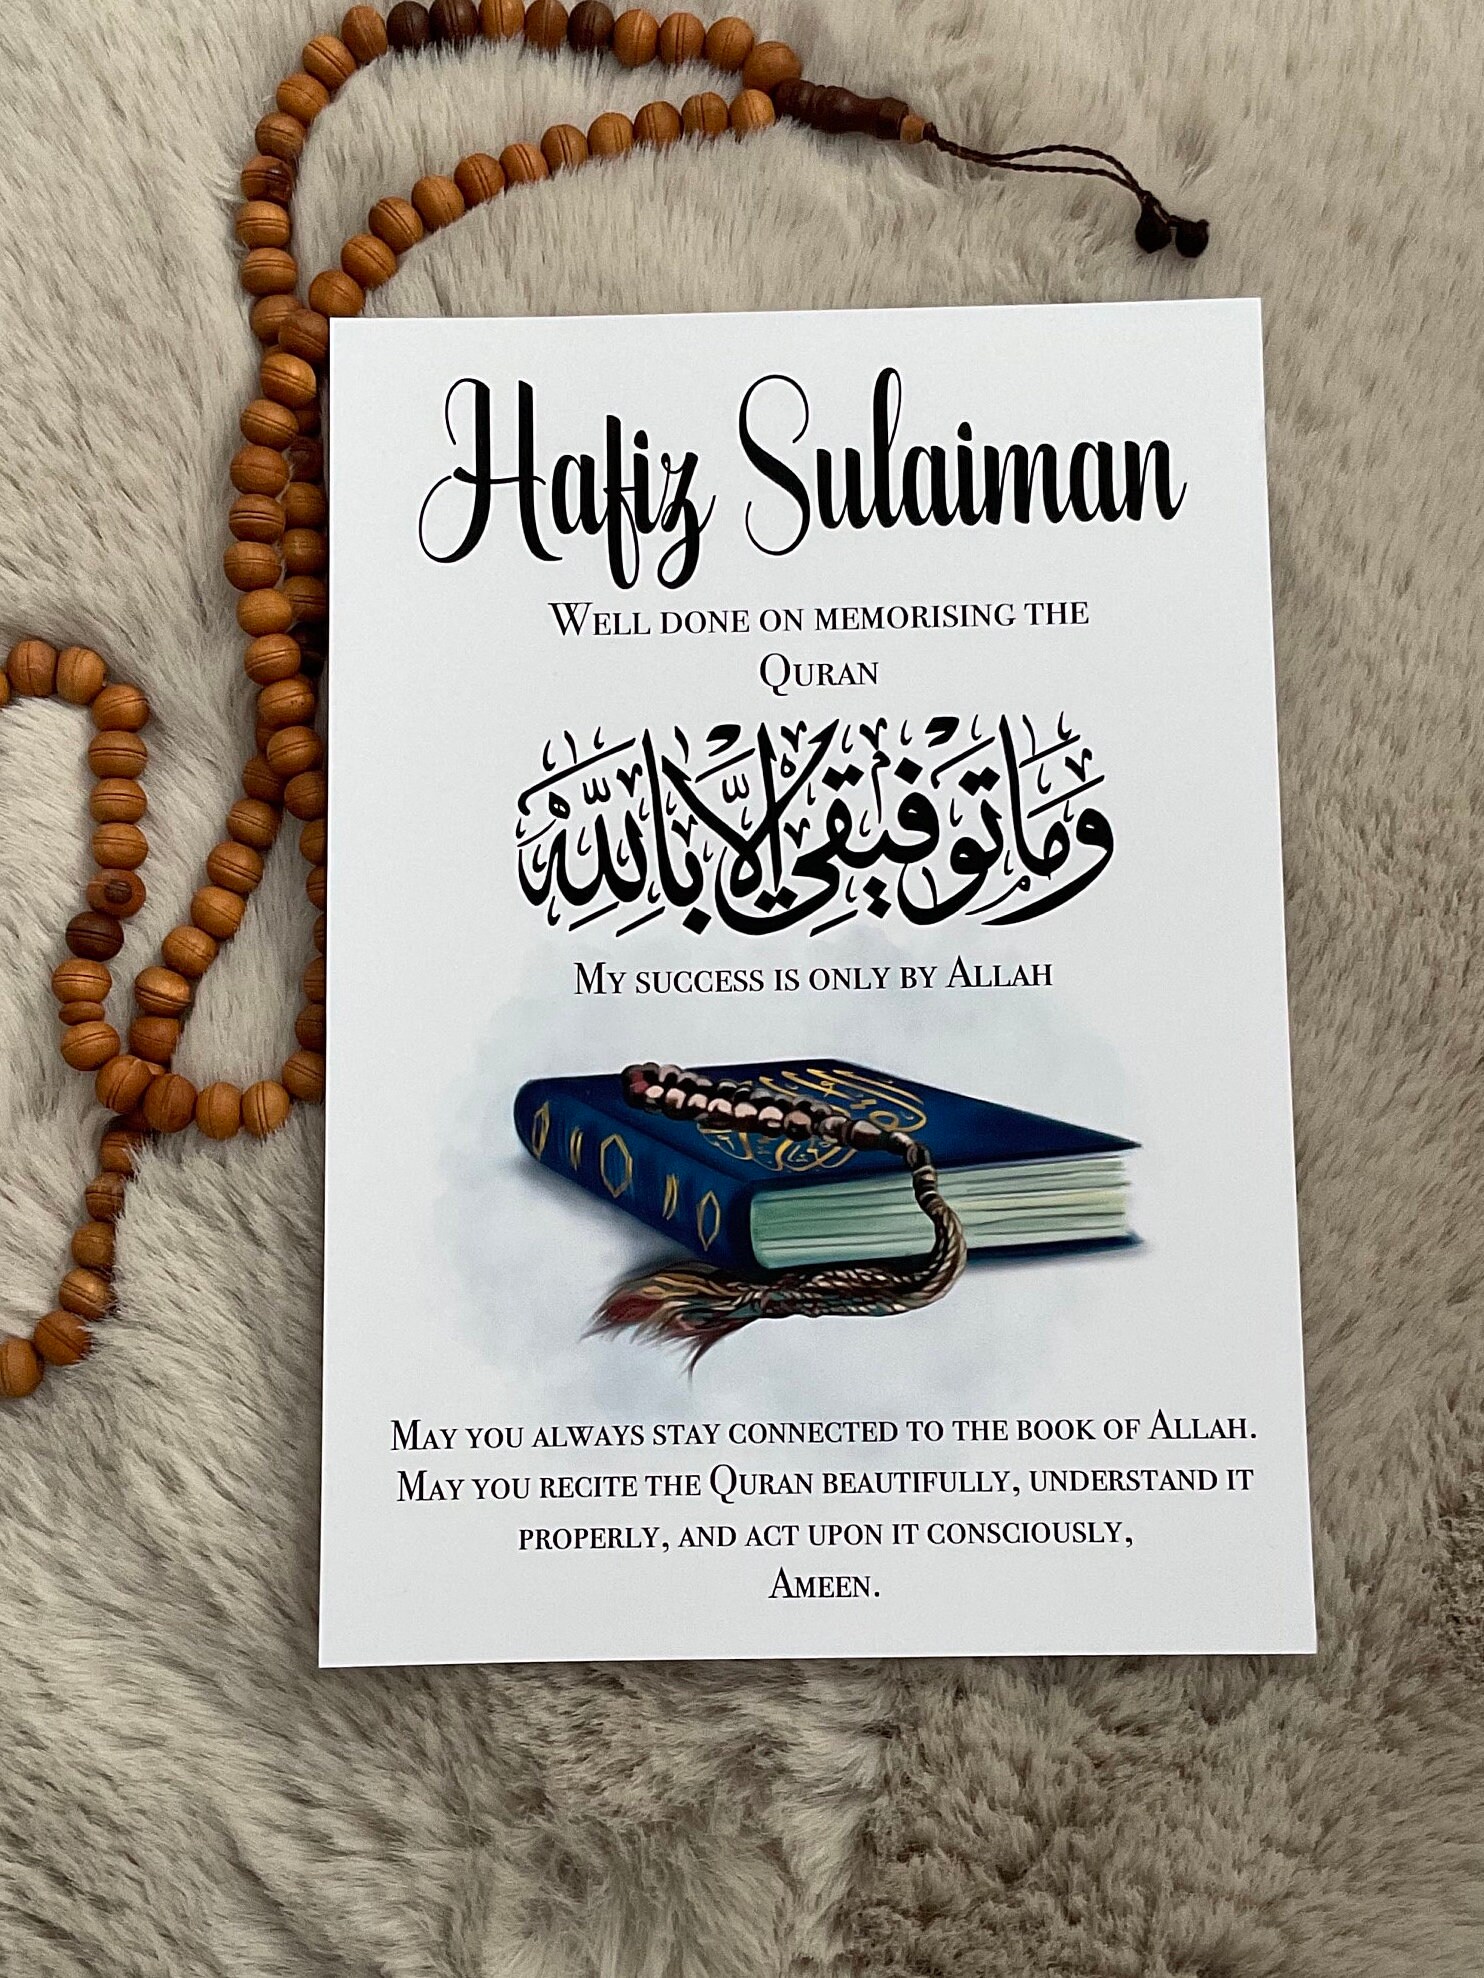 Hafiz Sulaiman
Well done on memorising the
Quran
وَمَا تَوْفِيقِي إِلَّا بِاللَّهِ
My success is only by Allah
May you always stay connected to the book of Allah.
May you recite the Quran beautifully, understand it
properly, and act upon it consciously,
Ameen.